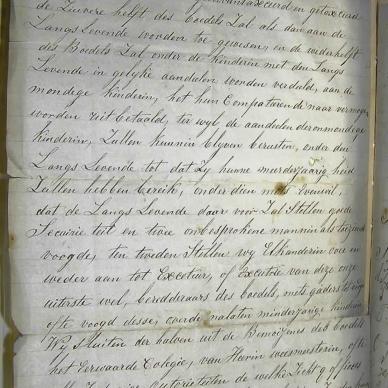 getaxeerd en getaxeerd
de Zuivere helft des boedels Zal als dan aan de
Langs Levende worden toe gewesen, en de wederhelft
des Boedels Zal onder de Kinderen met den Langs
Levende in gelyke aandeelen worden verdeeld, aan de
mondige kinderen, het hun Competeerende naar vermogen
worden uit betaald, terwyl de aandeelen der onmondige
Kinderen, Zullen kunnen blyven berusten, onder den
Langs Levende tot dat Zy hunne meerderjaarig heid
Zullen hebben bereik, onder dien mits Evenwil,
dat de Langs Levende daar voor Zal Stellen goede
Securie teit en twee onbesprokene mannen als toeziende
voogde, ten tweeden Stellen wy Elkanderin over en
weder aan tot Executeur, of Executrise van deze onze
uiterste wil, beredderaars des boedels, mits gaders
ofte voogd desse, overde nalaten minderjarige kinderen
Wy Sluiten der halven uit de Bemoeijenis des boedels
het Eerwaarde Colegie, van Heeren weesmeesteren, ofte
welke Zich of